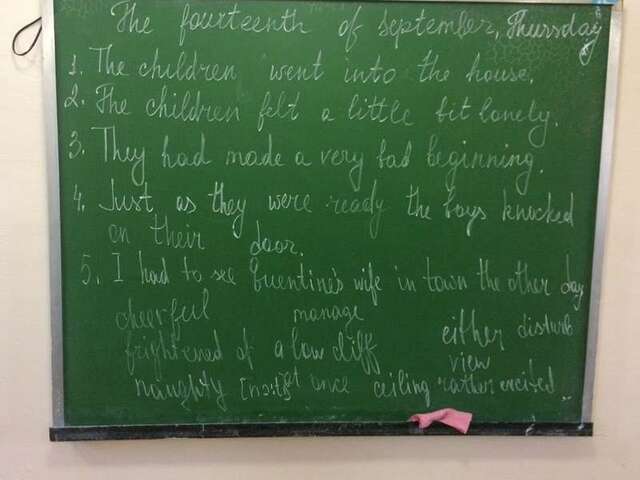 The fourteenth of september, Thursday
1. The children went into the house.
2. The children felt a little bit lonely.
3. They had made a very bad beginning.
4. Just as they were ready the boys knocked
on their door.
5. I had to see Quentine's wife in town the other day
cheerful manage either disturb
frightened of a low cliff view
naughty at once ceiling rather excited